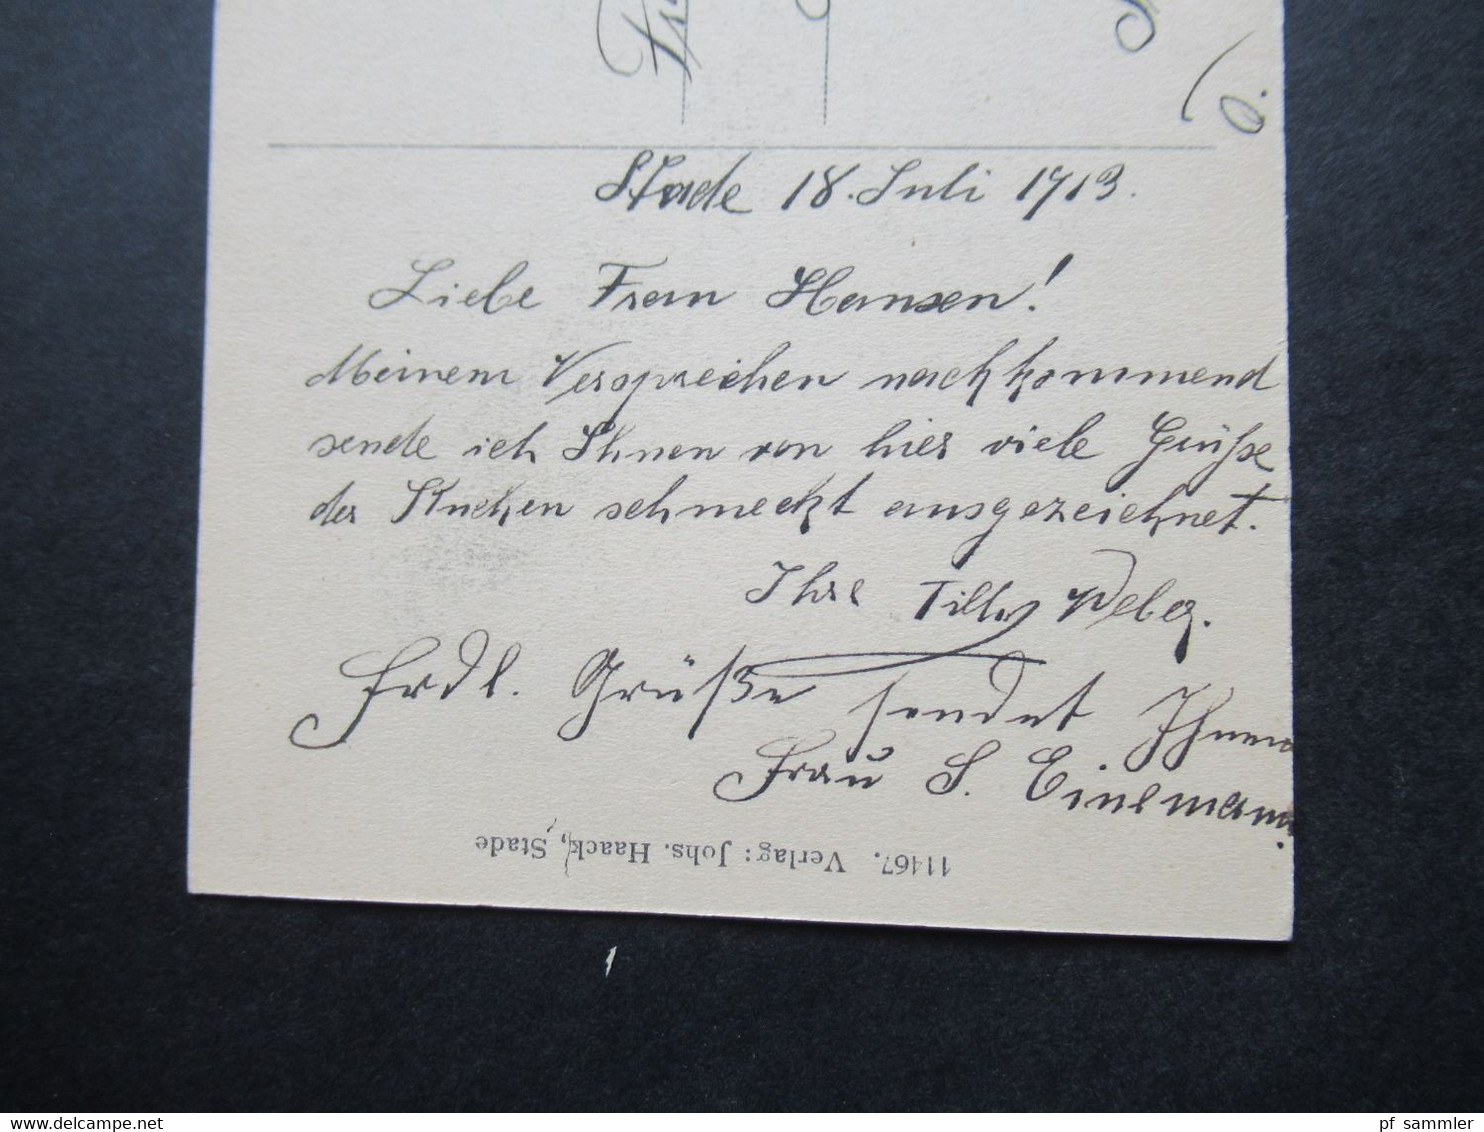 Stade 18. Juli 1913.
Liebe Frau Hansen!
Meinem Versprechen nachkommend
sende ich Ihnen von hier viele Grüße
der Kuchen schmeckt ausgezeichnet.
Ihre Tilly Weber.
Frdl. Grüße sendet Ihnen
Frau S. Einemann.
11467. Verlag: Johs. Haack, Stade
delcampe.net
pf_sammler